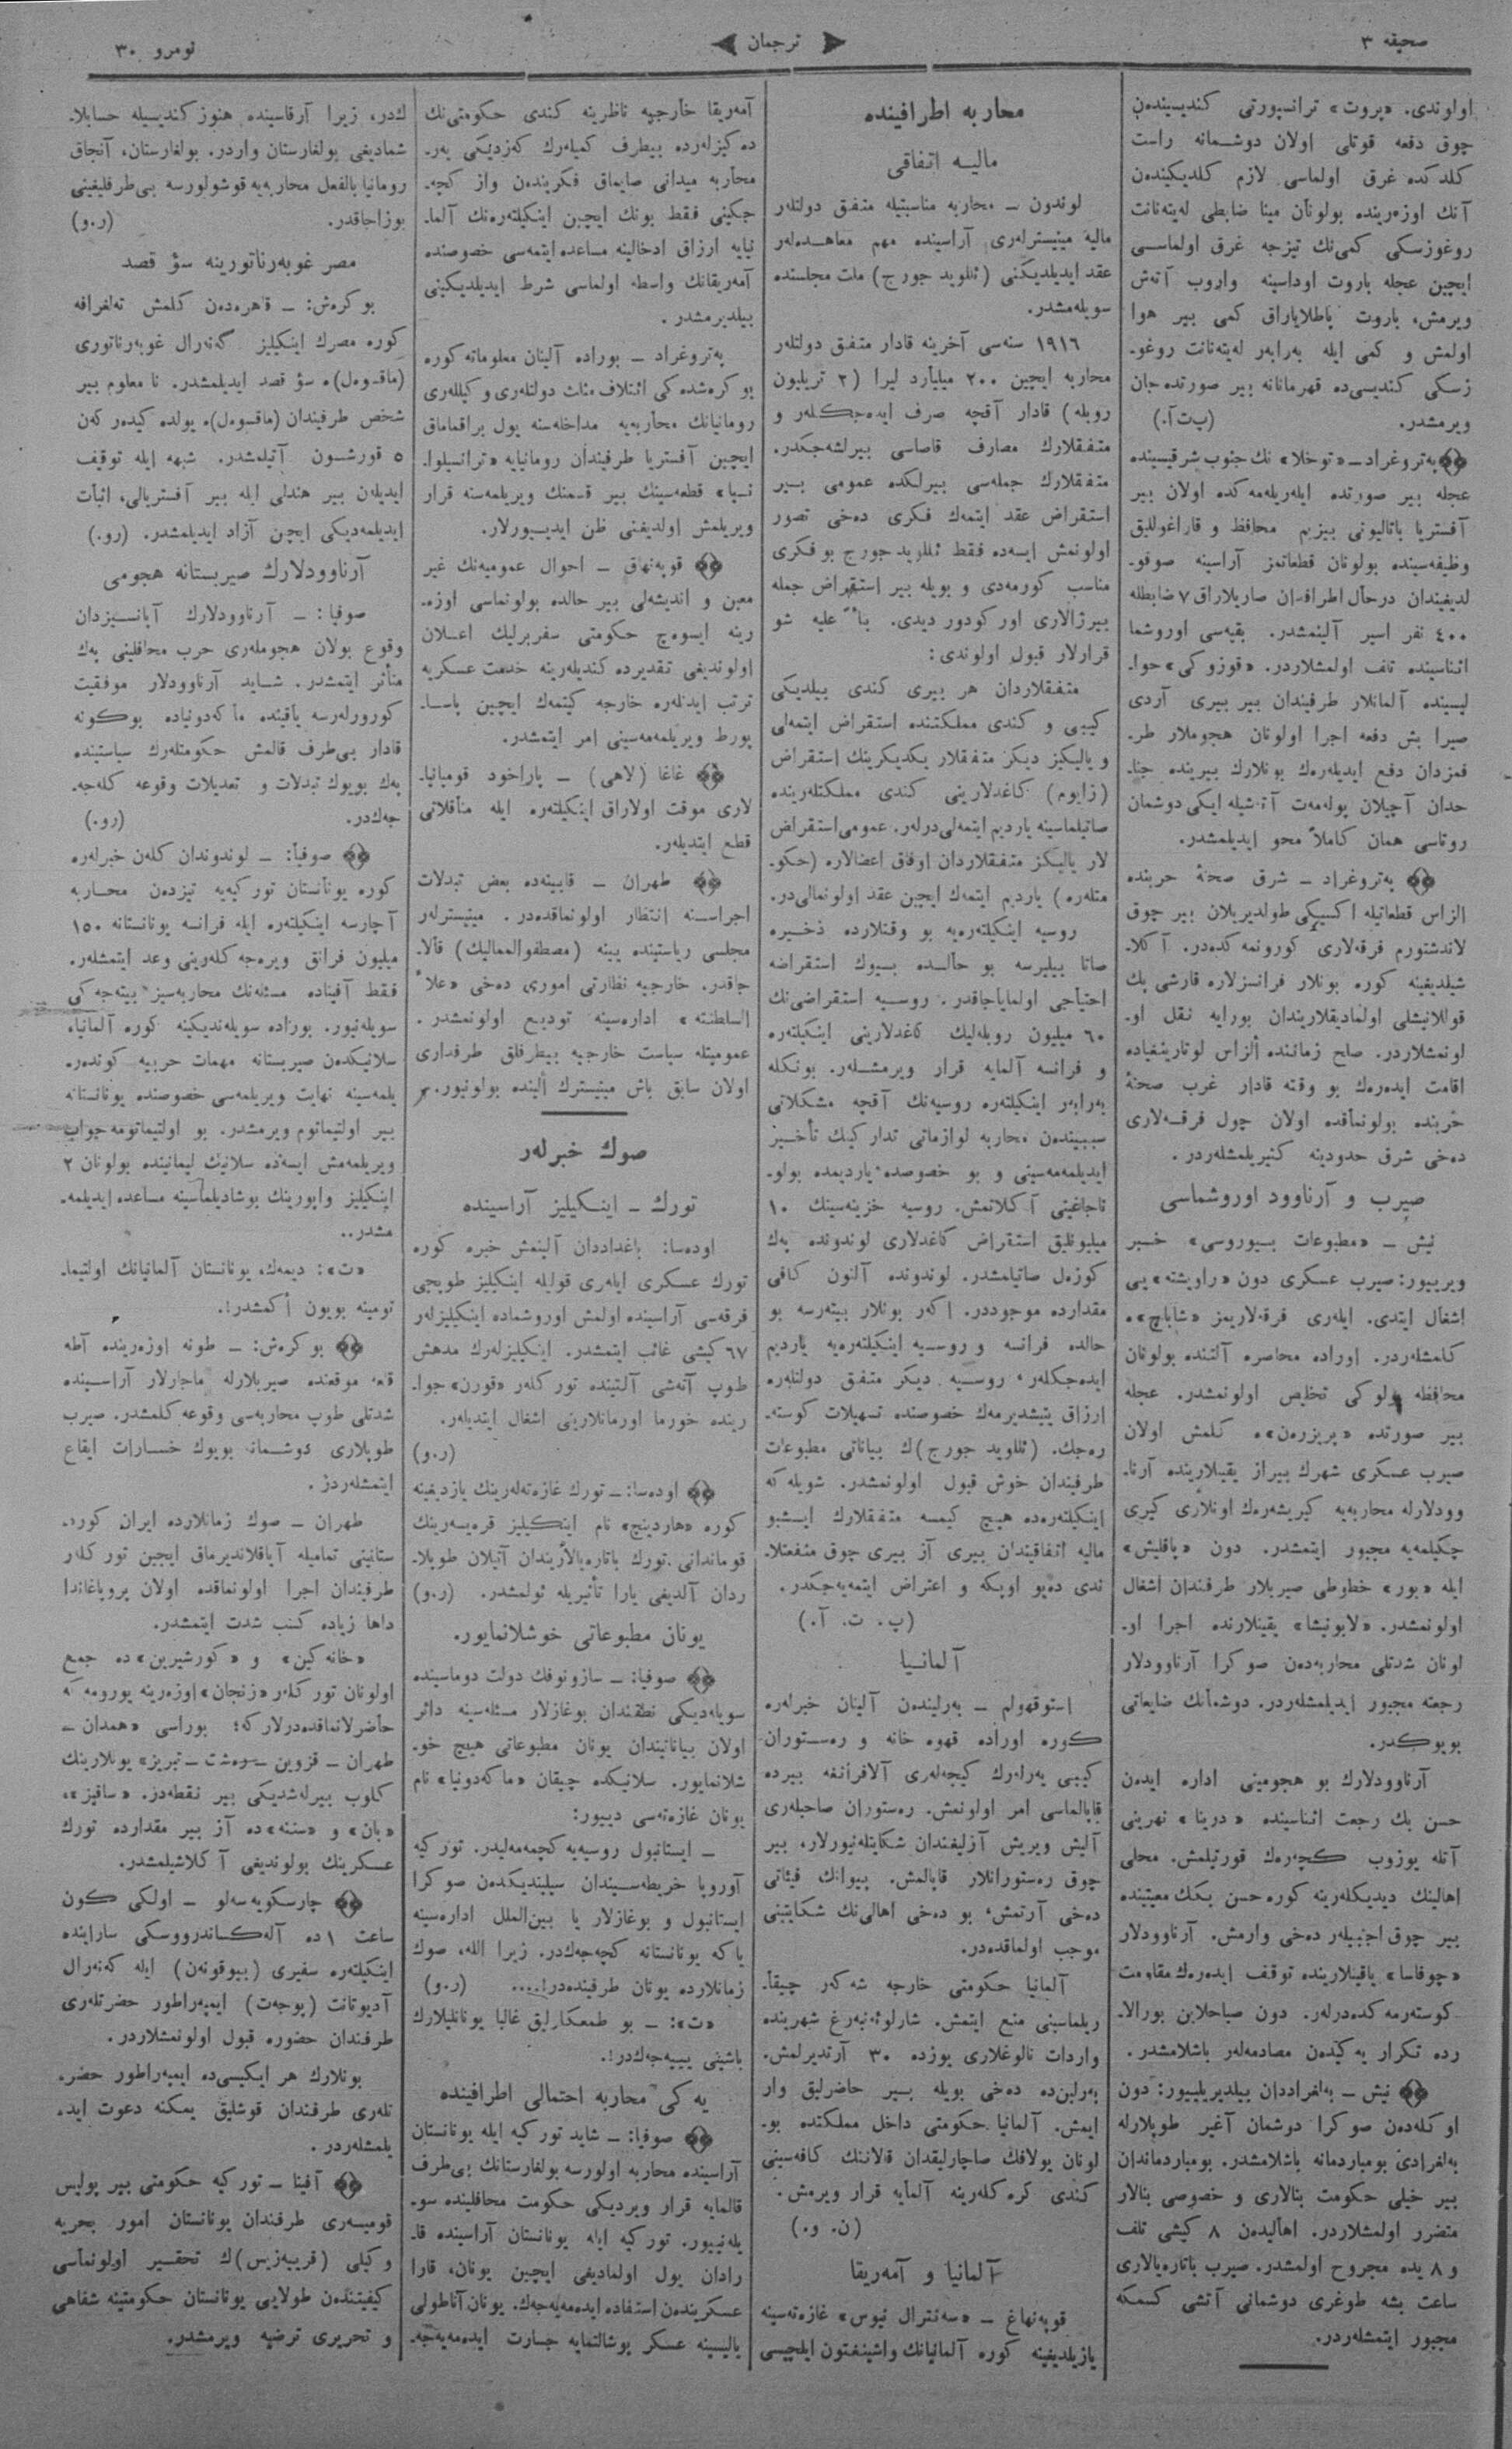 صحيفه ٣
ترجمان
نومرو ٣٠
اولوندی. «پروت» ترانسپورتی كنديسيندن
چوق دفعه قوتلی اولان دوشمانه راست
كلدكده غرق اولماسی لازم كلديكيندن
آنك اوزەرينده بولونان مينا ضابطی لەيتەنانت
روغوزسكی كمی‌نك تيزجه غرق اولماسی
ايچين عجله باروت اوداسينه واروب آتەش
ويرمش، باروت پاطلاياراق كمی بير هوا
اولمش و كمی ايله بەرابەر لەيتەنانت روغو-
زسكی كنديسی‌ده قهرمانانه بير صورتده جان
ويرمشدر. (پ‌ت‌آ.)
پەتروغراد — «توخلا» نك جنوب شرقيسينده
عجله بير صورتده ايلەريلەمەكده اولان بير
آفستريا باتاليونی بيزيم محافظ و قاراغوللق
وظيفەسينده بولونان قطعاتمز آراسينه صوقو-
لديغيندان درحال اطرافدان صاريلاراق ٧ ضابطله
٤٠٠ نفر اسير آلينمشدر. بقيەسی اوروشما
اثناسينده تلف اولمشلاردر. «قوزوكی» حوا-
ليسينده آلمانلار طرفيندان بير بيری آردی
صيرا بش دفعه اجرا اولونان هجوملار طر-
فمزدان دفع ايديلەرەك بونلارك بيرينده جنا-
حدان آچيلان پولەمەت آتشيله ايكی دوشمان
روتاسی همان كاملاً محو ايديلمشدر.
پەتروغراد — شرق صحنهٔ حربنده
الزاس قطعاتيله اكسيكی طولديريلان بير چوق
لاندشتورم فرقەلاری كورونمەكدەدر. آكلا-
شيلديغينه كوره بونلار فرانسزلاره قارشی پك
قوللانيشلی اولماديقلاريندان بورايه نقل او-
لونمشلاردر. صلح زماننده الزاس لوتارينغياده
اقامت ايدەرەك بو وقته قادار غرب صحنهٔ
حربنده بولونماقده اولان چول فرقەلاری
دەخی شرق حدودينه كتيريلمشلەردر.
صيرب و آرناوود اوروشماسی
نيش — «مطبوعات بيوروسی» خبر
ويرييور: صيرب عسكری دون «راويشته» يی
اشغال ايتدی. ايلەری فرقەلاريمز «شاباچ»ه
كلمشلەردر. اوراده محاصره آلتنده بولونان
محافظه پولوكی تخليص اولونمشدر. عجله
بير صورتده «پريزرەن»ه كلمش اولان
صيرب عسكری شهرك بيراز يقينلارينده آرنا-
وودلارله محاربەيه كيريشەرەك اونلاری كيری
چكيلمەيه مجبور ايتمشدر. دون «باقليش»
ايله «بور» خطوطی صيربلار طرفندان اشغال
اولونمشدر. «لابونيشا» يقينلارنده اجرا او-
لونان شدتلی محاربەدەن صوكرا آرناوودلار
رجعته مجبور ايديلمشلەردر. دوشمانك ضايعاتی
بويوكدر.
آرناوودلارك بو هجومينی اداره ايدەن
حسن بك رجعت اثناسينده «درينا» نهرينی
آتله يوزوب كچەرەك قورتيلمش. محلی
اهالينك ديديكلەرينه كوره حسن بكك معيتينده
بير چوق اجنبيلەر دەخی وارمش. آرناوودلار
«چوقاسا» ياقينلارينده توقف ايدەرەك مقاومت
كوستەرمەكدەدرلەر. دون صباحلاين بورالا-
رده تكرار يەكيدەن مصادمەلەر باشلامشدر.
نيش — بەلغراددان بيلديريلييور: دون
اوكلەدەن صوكرا دوشمان آغير طوپلارله
بەلغرادی بومباردمانه باشلامشدر. بومباردماندان
بير خيلی حكومت بنالاری و خصوصی بنالار
متضرر اولمشلاردر. اهاليدەن ٨ كيشی تلف
و ٨ يده مجروح اولمشدر. صيرب باتارەيالاری
ساعت بشه طوغری دوشمانی آتشی كسمكه
مجبور ايتمشلەردر.
محاربه اطرافينده
ماليه اتفاقی
لوندون — محاربه مناسبتيله متفق دولتلەر
ماليه مينيسترلەری آراسينده مهم معاهدەلەر
عقد ايديلديكنی (ئللويد جورج) ملت مجلسنده
سويلەمشدر.
١٩١٦ سنەسی آخرينه قادار متفق دولتلەر
محاربه ايچين ٢٠٠ ميليارد ليرا (٢ تريليون
روبله) قادار آقچه صرف ايدەجكلەر و
متفقلارك مصارف قاصاسی بيرلشەجكدر.
متفقلارك جملەسی بيرلكده عمومی بير
استقراض عقد ايتمەك فكری دەخی تصور
اولونمش ايسەده فقط ئللويد جورج بو فكری
مناسب كورمەدی و بويله بير استقراض جمله
بيرژالاری اوركودور ديدی. بناءً عليه شو
قرارلار قبول اولوندی:
متفقلاردان هر بيری كندی بيلديكی
كيبی و كندی مملكتنده استقراض ايتمەلی
و ياليكيز ديكر متفقلار يكديكرينك استقراض
(زايوم) كاغدلارينی كندی مملكتلەرينده
صاتيلماسينه يارديم ايتمەلی‌درلەر. عمومی استقراض
لار ياليكز متفقلاردان اوفاق اعضالاره (حكو-
متلەره) يارديم ايتمەك ايچين عقد اولونمالی‌در.
روسيه اينكيلتەرەيه بو وقتلارده ذخيره
صاتا بيليرسه بو حالده بويوك استقراضه
احتياجی اولماياجاقدر. روسيه استقراضی‌نك
٦٠ ميليون روبلەليك كاغدلارينی اينكيلتەره
و فرانسه آلمايه قرار ويرمشلەر. بونكله
بەرابەر اينكيلتەره روسيەنك آقچه مشكلاتی
سببيندەن محاربه لوازماتی تداركينك تأخير
ايديلمەمەسينی و بو خصوصده يارديمده بولو-
ناجاغينی آكلاتمش. روسيه خزينەسينك ١٠
ميليونليق استقراض كاغدلاری لوندونده پەك
كوزەل صاتيلمشدر. لوندونده آلتون كافی
مقدارده موجوددر. اكەر بونلار بيتەرسه بو
حالده فرانسه و روسيه اينكيلتەرەيه يارديم
ايدەجكلەر، روسيه ديكر متفق دولتلەره
ارزاق يتيشديرمەك خصوصنده تسهيلات كوستە-
رەجك. (ئللويد جورج)ك بياناتی مطبوعات
طرفيندان خوش قبول اولونمشدر. شويله كه
اينكيلتەرەده هيچ كيمسه متفقلارك ايشبو
ماليه اتفاقيندان بيری آز بيری چوق منفعتلا-
ندی دەيو اوپكه و اعتراض ايتمەيەجكدر.
(پ. ت. آ.)
آلمانيا
استوقهولم — بەرليندەن آلينان خبرلەره
كوره اوراده قهوه خانه و رەستوران
كيبی يەرلەرك كيجەلەری آلافرانغه بيرده
قاپالماسی امر اولونمش. رەستوران صاحبلەری
آليش ويريش آزليغندان شكايتلەنيورلار، بير
چوق رەستورانلار قاپالمش. پيوانك فيئاتی
دەخی آرتمش، بو دەخی اهالی‌نك شكايتينی
موجب اولماقدەدر.
آلمانيا حكومتی خارجه شەكەر چيقا-
ريلماسينی منع ايتمش. شارلوتەنبەرغ شهرينده
واردات نالوغلاری يوزده ٣٠ آرتديرلمش.
بەرلين‌ده دەخی بويله بير حاضرليق وار
ايمش. آلمانيا حكومتی داخل مملكتده بو-
لونان پولافك صاچارليقدان قالاننك كافەسينی
كندی كرەكلەرينه آلمايه قرار ويرمش.
(ن. و.)
آلمانيا و آمەريقا
قوپەنهاغ — «سەنترال نيوس» غازەتەسينه
يازيلديغينه كوره آلمانيانك واشينغتون ايلچيسی
آمەريقا خارجيه ناظرينه كندی حكومتی‌نك
دەكيزلەرده بيطرف كميلەرك كەزديكی يەر-
محاربه ميدانی صايماق فكريندەن واز كچە-
جكينی فقط بونك ايچين اينكيلتەرەنك آلما-
نيايه ارزاق ادخالينه مساعده ايتمەسی خصوصنده
آمەريقانك واسطه اولماسی شرط ايديلديكينی
بيلديرمشدر.
پەتروغراد — بوراده آلينان معلوماته كوره
بوكرەشده‌كی ائتلاف مثلث دولتلەری وكيللەری
رومانيانك محاربەيه مداخلەسنه يول براقماماق
ايچين آفستريا طرفيندان رومانيايه «ترانسيلوا-
نيا» قطعەسينك بير قسمنك ويريلمەسنه قرار
ويريلمش اولديغنی ظن ايديیورلار.
قوپەنهاق — احوال عموميەنك غير
معين و انديشەلی بير حالده بولونماسی اوزە-
رينه ايسوەچ حكومتی سفربرليك اعلان
اولونديغی تقديرده كنديلەرينه خدمت عسكريه
ترتب ايدنلەره خارجه كيتمەك ايچين پاسا-
پورط ويريلمەمەسينی امر ايتمشدر.
غاغا (لاهی) — پاراخود قومپانيا-
لاری موقت اولاراق اينكيلتەره ايله مناقلاتی
قطع ايتديلەر.
طهران — قابينەده بعض تبدلات
اجراسنه انتظار اولونماقدەدر. مينيسترلەر
مجلسی رياستينده يينه (مصطفو الممالك) قالا-
جاقدر. خارجيه نظارتی اموری دەخی «علاء
السلطنه» ادارەسينه توديع اولونمشدر.
عموميتله سياست خارجيه بيطرفلق طرفداری
اولان سابق باش مينيسترك الينده بولونيور.
صوك خبرلەر
تورك — اينكيليز آراسينده
اودەسا: باغداددان آلينمش خبره كوره
تورك عسكری ايلەری قوليله اينكيليز طوپجی
فرقەسی آراسينده اولمش اوروشماده اينكيليزلەر
٦٧ كيشی غائب ايتمشدر. اينكيليزلەرك مدهش
طوپ آتەشی آلتينده توركلەر «قورن» جوا-
رينده خورما اورمانلارينی اشغال ايتديلەر.
(ر.و)
اودەسا: — تورك غازەتەلەرينك يازديغينه
كوره «هاردينج» نام اينكيليز قرەيسەرينك
قوماندانی تورك باتارەيالاريندان آتيلان طوپلا-
ردان آلديغی يارا تأثيريله ئولمشدر. (ر.و)
يونان مطبوعاتی خوشلانمايور.
صوفيا: — سازونوفك دولت دوماسينده
سويلەديكی نطقندان بوغازلار مسئلەسينه دائر
اولان بياناتيندان يونان مطبوعاتی هيچ خو-
شلانمايور. سلانيكده چيقان «ماكەدونيا» نام
يونان غازەتەسی دييور:
— ايستانبول روسيەيه كچمەمەليدر. توركيه
آوروپا خريطەسيندان سيلينديكدەن صوكرا
ايستانبول و بوغازلار يا بين‌الملل ادارەسينه
ياكه يونانستانه كچەجەكدر. زيرا الله، صوك
زمانلارده يونان طرفيندەدر!.... (ر.و)
«ت»: — بو طمعكارلق غالبا يونانليلارك
باشينی يييەجەكدر!.
يەكی محاربه احتمالی اطرافينده
صوفيا: — شايد توركيه ايله يونانستان
آراسينده محاربه اولورسه بولغارستانك بی‌طرف
قالمايه قرار ويرديكی حكومت محافلينده سو-
يلەنييور. توركيه ايله يونانستان آراسينده قا-
رادان يول اولماديغی ايچين يونان، قارا
عسكريندەن استفاده ايدەمەيەجەك. يونان آناطولی
ياليسينه عسكر بوشالتمايه جسارت ايدەمەيەجە-
ك‌در، زيرا آرقاسينده هنوز كنديسيله حسابلا-
شماديغی بولغارستان واردر. بولغارستان، آنجاق
رومانيا بالفعل محاربەيه قوشولورسه بی‌طرفليغينی
بوزاجاقدر. (ر.و)
مصر غوبەرناتورينه سؤ قصد
بوكرەش: — قاهرەدەن كلمش تەلغرافه
كوره مصرك اينكيليز گەنەرال غوبەرناتوری
(ماقسوەل)ه سؤ قصد ايديلمشدر. نا معلوم بير
شخص طرفيندان (ماقسوەل)ه يولده كيدەركەن
٥ قورشون آتيلمشدر. شبهه ايله توقيف
ايديلەن بير هندلی ايله بير آفستريالی، اثبات
ايديلمەديكی ايچين آزاد ايديلمشدر. (رو.)
آرناوودلارك صيربستانه هجومی
صوفيا: — آرناوودلارك آپانسيزدان
وقوع بولان هجوملەری حرب محافلينی پەك
متأثر ايتمشدر. شايد آرناوودلار موفقيت
كورورلەرسه ياقينده ماكەدونياده بوكونه
قادار بی‌طرف قالمش حكومتلەرك سياستينده
پەك بويوك تبدلات و تعديلات وقوعه كلەجە-
جەك‌در. (رو.)
صوفيا: — لوندوندان كلەن خبرلەره
كوره يونانستان توركيەيه تيزدەن محاربه
آچارسه اينكيلتەره ايله فرانسه يونانستانه ١٥٠
ميليون فرانق ويرەجەكلەرينی وعد ايتمشلەر.
فقط آفيناده مسئلەنك محاربەسيز بيتەجەكی
سويلەنيور. بوراده سويلەنديكينه كوره آلمانيا،
سلانيكدەن صيربستانه مهمات حربيه كوندەر-
يلمەسينه نهايت ويريلمەسی خصوصنده يونانستانه
بير اولتيماتوم ويرمشدر. بو اولتيماتومه جواب
ويريلمەمش ايسەده سلانيك ليمانينده بولونان ٢
اينكيليز واپورينك بوشاديلماسينه مساعده ايديلمە-
مشدر..
«ت»: ديمەك، يونانستان آلمانيانك اولتيما-
تومينه بويون اكمشدر!.
بوكرەش: — طونه اوزەرينده آطه
قلعه موقعنده صيربلارله ماجارلار آراسينده
شدتلی طوپ محاربەسی وقوعه كلمشدر. صيرب
طوپلاری دوشمانه بويوك خسارات ايقاع
ايتمشلەردر.
طهران — صوك زمانلارده ايران كورد-
ستانينی تماميله آياقلانديرماق ايچين توركلەر
طرفيندان اجرا اولونماقده اولان پروپاغاندا
داها زياده كسب شدت ايتمشدر.
«خانه‌كين» و «كورشيرين»ده جمع
اولونان توركلەر «زنجان» اوزەرينه يورومەكه
حاضرلانماقدەدرلار كه؛ بوراسی «همدان —
طهران — قزوين — رەشت — تبريز» يوللارينك
كلوب بيرلەشديكی بير نقطەدر. «ساقيز»،
«بان» و «سننه»ده آز بير مقدارده تورك
عسكرينك بولونديغی آكلاشيلمشدر.
چارسكويەسەلو — اولكی كون
ساعت ١ ده آلەكساندرووسكی سارايينده
اينكيلتەره سفيری (بيوقونەن) ايله كەنەرال
آديوتانت (پوجەت) ايمپەراطور حضرتلەری
طرفندان حضوره قبول اولونمشلاردر.
بونلارك هر ايكيسی‌ده ايمپەراطور حضر-
تلەری طرفندان قوشليق يمكنه دعوت ايد-
يلمشلەردر.
آفينا — توركيه حكومتی بير پوليس
قوميسەری طرفندان يونانستان امور بحريه
وكيلی (قريپەزيس)ك تحقير اولونماسی
كيفيتندن طولايی يونانستان حكومتينه شفاهی
و تحريری ترضيه ويرمشدر.